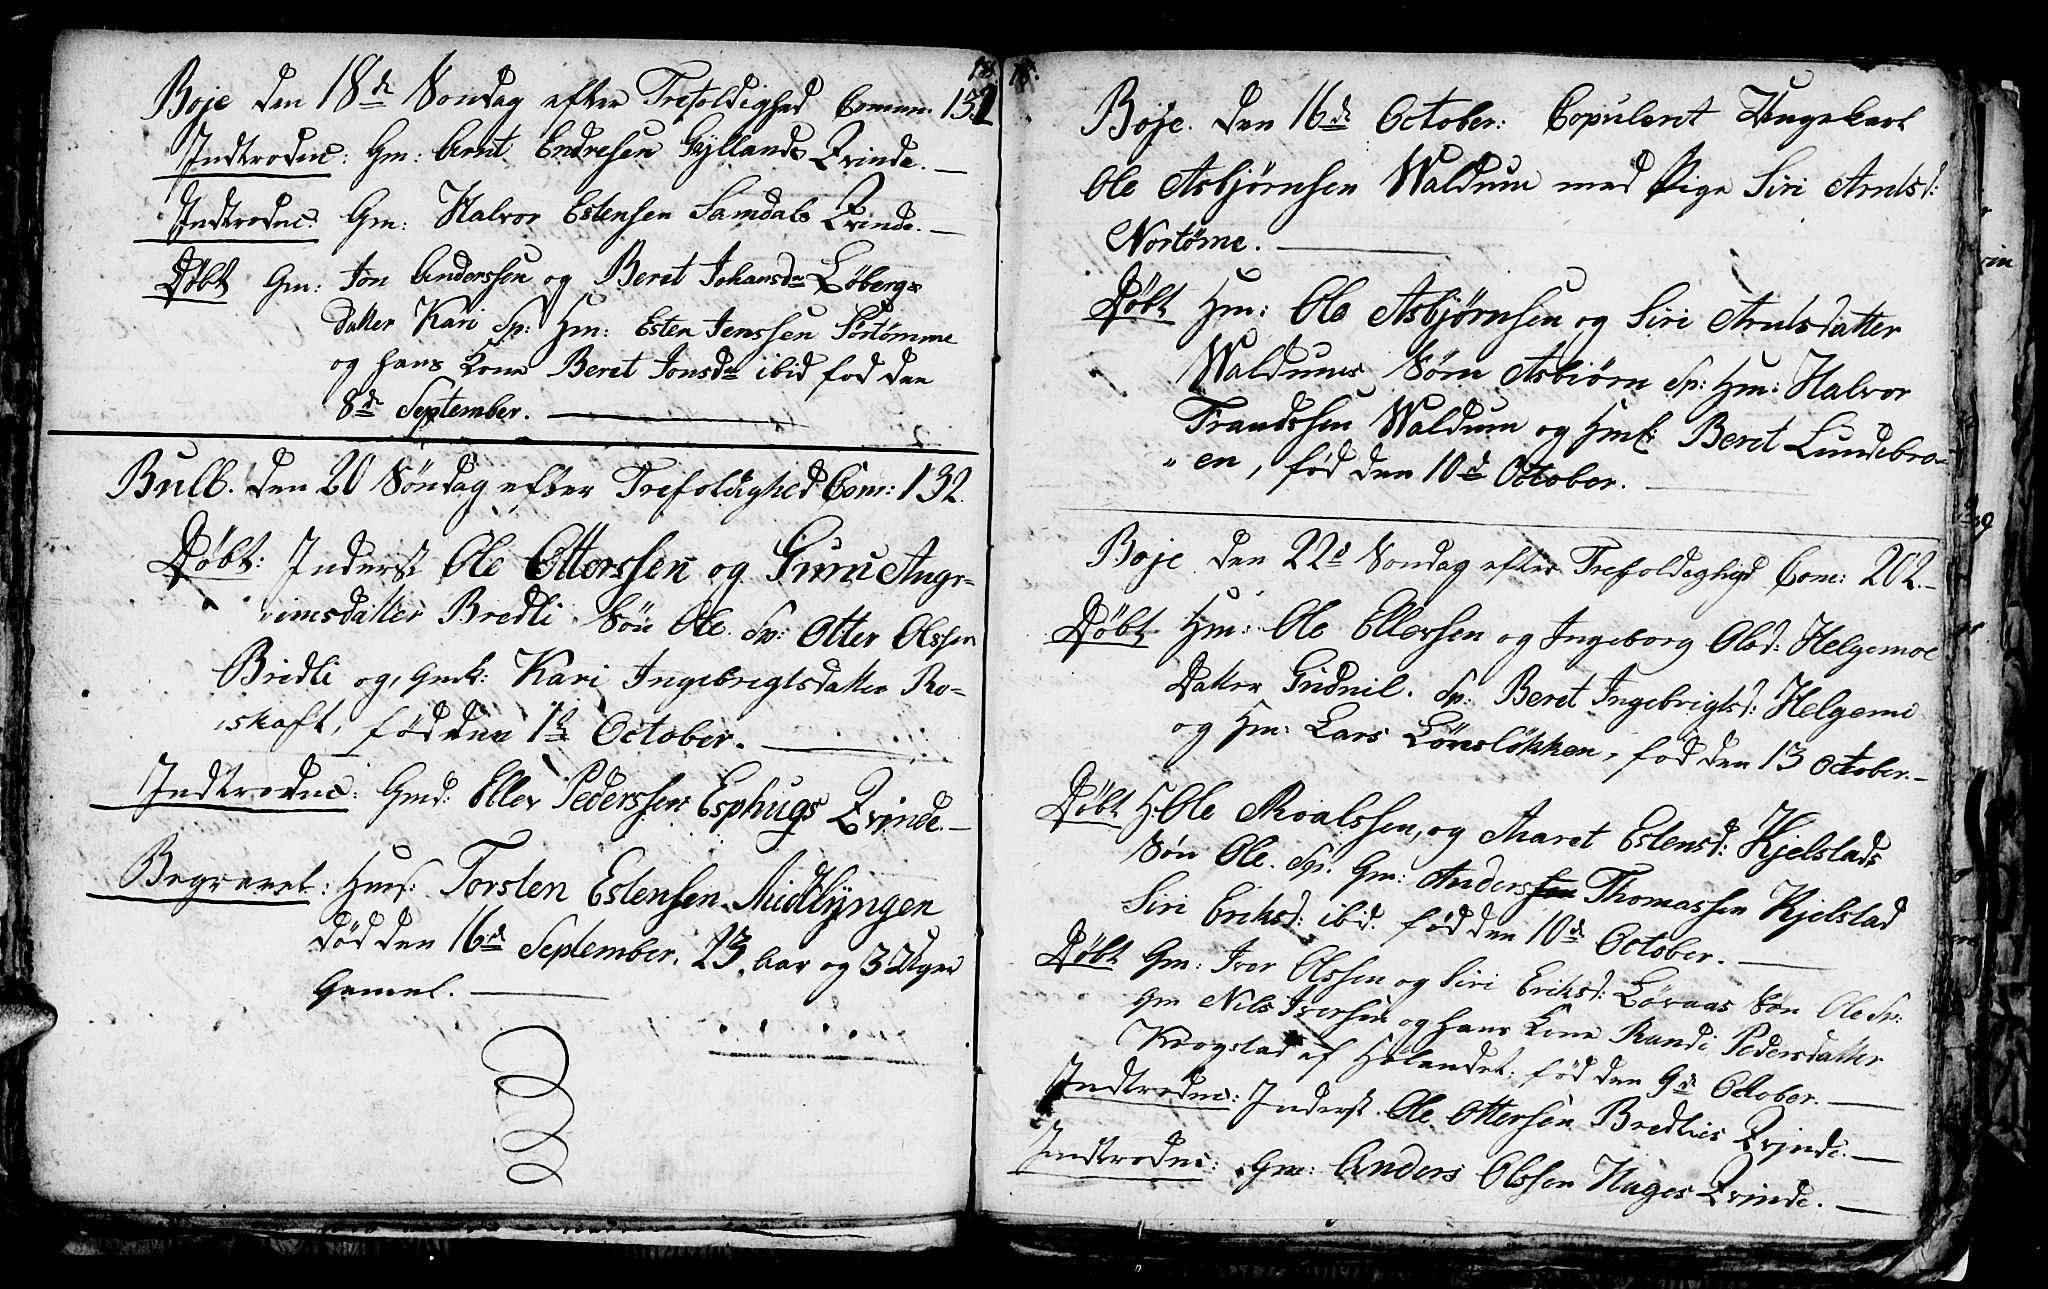 18.
Boje den 18de Søndag efter Trefoldighed Commun. 132
Indtroduc: Gm: Arnt Endresen Gyllands Qvinde.
Indtroduc: Gm: Halvor Estensen Samdals Qvinde.
Døbt Gm: Jon Anderssen og Beret Johansdr Løbergs
Datter Kari Sp: Hm: Esten Jenssen Sørtømme
og hans Kone Beret Jonsdr ibid fød den
8de September.
Bull. den 20 Søndag efter Trefoldighed Com: 132.
Døbt: Inderst Ole Otterssen og Guru Angr-
imsdatter Bredli Søn Ole. Sp: Otter Olssen
Bredli og Gmk: Kari Ingebrigtsdatter Ro-
skaft, fød den 1de October.
Indtroduc: Gmd: Eller Pederssens Esphugs Qvinde.
Begravet: Hms: Torsten Estensen Midtlyngen
død den 16de September. 23 Aar og 3 Uger
Gamel.
18.
Boje. den 16de October: Copuleret Ungekarl
Ole Asbjørnsen Waldum med Pige Siri Arntsd:
Nortøme.
Døbt Hm: Ole Asbjørnsen og Siri Arntsdatter
Waldums Søn Asbiørn Sp: Hm: Halvor
Frandssen Waldum og Hmk: Beret Lundebro-
en, fød den 10de October.
Boje den 22d Søndag efter Trefoldighed Com: 202.
Døbt. Hm: Ole Ellevsen og Ingeborg Olsd: Helgemoe
Datter Gidnil. Sp: Beret Ingebrigtsd: Helgeme
og Hm: Lars Lønsløkken, fød den 13 October.
Døbt H: Ole Roalssen, og Maret Estensd: Kjelstads
Søn Ole. Sp. Gm: Anderssen Thomassen Kjelstad
Siri Eriksd: ibid. fød den 10de October.
Døbt Gm: Iver Olssen og Siri Eriksd: Løvaas Søn Ole Sp:
Gm Nils Iversen og hans Kone Randi Pedersdatter
Krogstad af Hølandet: fød den 9de October.
Indtroduc: Inderst. Ole Ottersen Bredlies Qvinde.
Indtroduc: Gm: Anders Olssen Hages Qvinde.